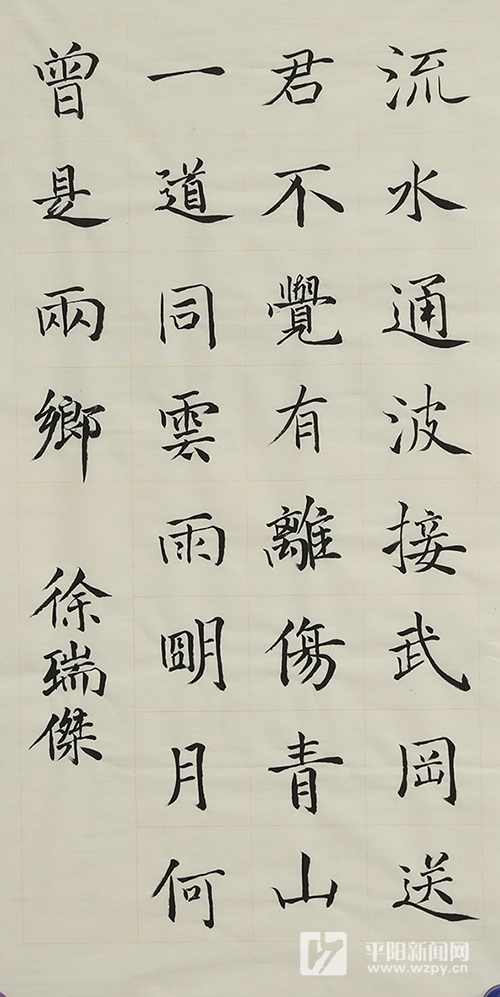 流水通波接武岡送
君不覺有離傷青山
一道同雲雨朙月何
曾是兩鄉
徐瑞傑
平阳新闻网
www.wzpy.cn